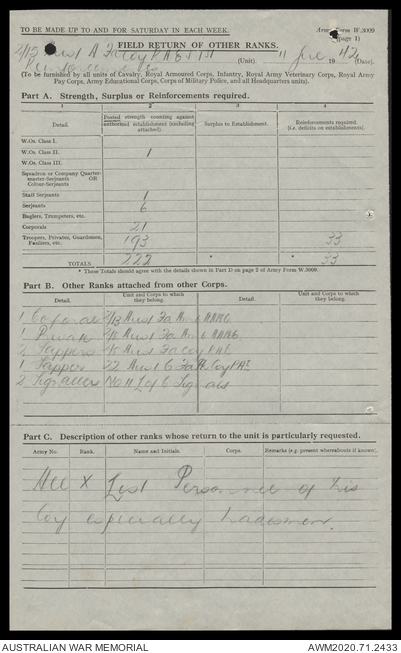 TO BE MADE UP TO AND FOR SATURDAY IN EACH WEEK.
Army Form W.3009
(page 1)
FIELD RETURN OF OTHER RANKS.
2/13 Aust Fd Coy RAE AIF (Unit). 11 Jul 1942 (Date).
Reinforcements
(To be furnished by all units of Cavalry, Royal Armoured Corps, Infantry, Royal Army Veterinary Corps, Royal Army
Pay Corps, Army Educational Corps, Corps of Military Police, and all Headquarters units).
Part A. Strength, Surplus or Reinforcements required.
1 2 3 4
Detail. Posted strength counting against authorised establishment (excluding attached). Surplus to Establishment. Reinforcements required. (i.e. deficits on establishments).
W.Os. Class I.
W.Os. Class II. 1
W.Os. Class III.
Squadron or Company Quarter-master-Serjeants OR Colour-Serjeants
Staff Serjeants 1
Serjeants 6
Buglers, Trumpeters, etc.
Corporals 21
Troopers, Privates, Guardsmen, Fusiliers, etc. 193 33
TOTALS 222 * * 33
* These Totals should agree with the details shown in Part D on page 2 of Army Form W.3009.
Part B. Other Ranks attached from other Corps.
Detail. Unit and Corps to which they belong. Detail. Unit and Corps to which they belong.
1 Corporal Aust Fd Amb AAMC
1 Private Aust Fd Amb AAMC
2 Sappers Aust Fd Coy RAE
1 Sapper 22 Aust RAE
2 Signallers No 11 Sigs
Part C. Description of other ranks whose return to the unit is particularly requested.
Army No. Rank. Name and Initials. Corps. Remarks (e.g. present whereabouts if known).
All X List Personnel of this
Coy especially tradesmen.
AUSTRALIAN WAR MEMORIAL AWM2020.71.2433